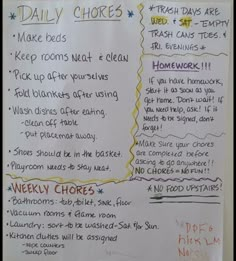 * DAILY CHORES *
• Make beds
• Keep rooms neat & clean
• Pick up after yourselves
• Fold blankets after using
• Wash dishes after eating
- clean off table
- put placemat away.
• Shoes should be in the basket.
• Playroom needs to stay neat.
* WEEKLY CHORES *
• Bathrooms: tub, toilet, sink, floor
• Vacuum rooms & Game room
• Laundry: sort-to be washed - Sat / Sun.
• Kitchen duties will be assigned
- wipe counters
- sweep floor
* TRASH DAYS ARE
WED. & SAT - EMPTY
TRASH CANS TUES. &
FRI. EVENINGS *
HOMEWORK!!!
If you have homework,
start it as soon as you
get home. Don't wait! If
you need help, ask! If it
needs to be signed, don't
forget!
* Make sure your chores
are completed before
asking to go anywhere!!
NO CHORES = NO FUN!!
* NO FOOD UPSTAIRS!